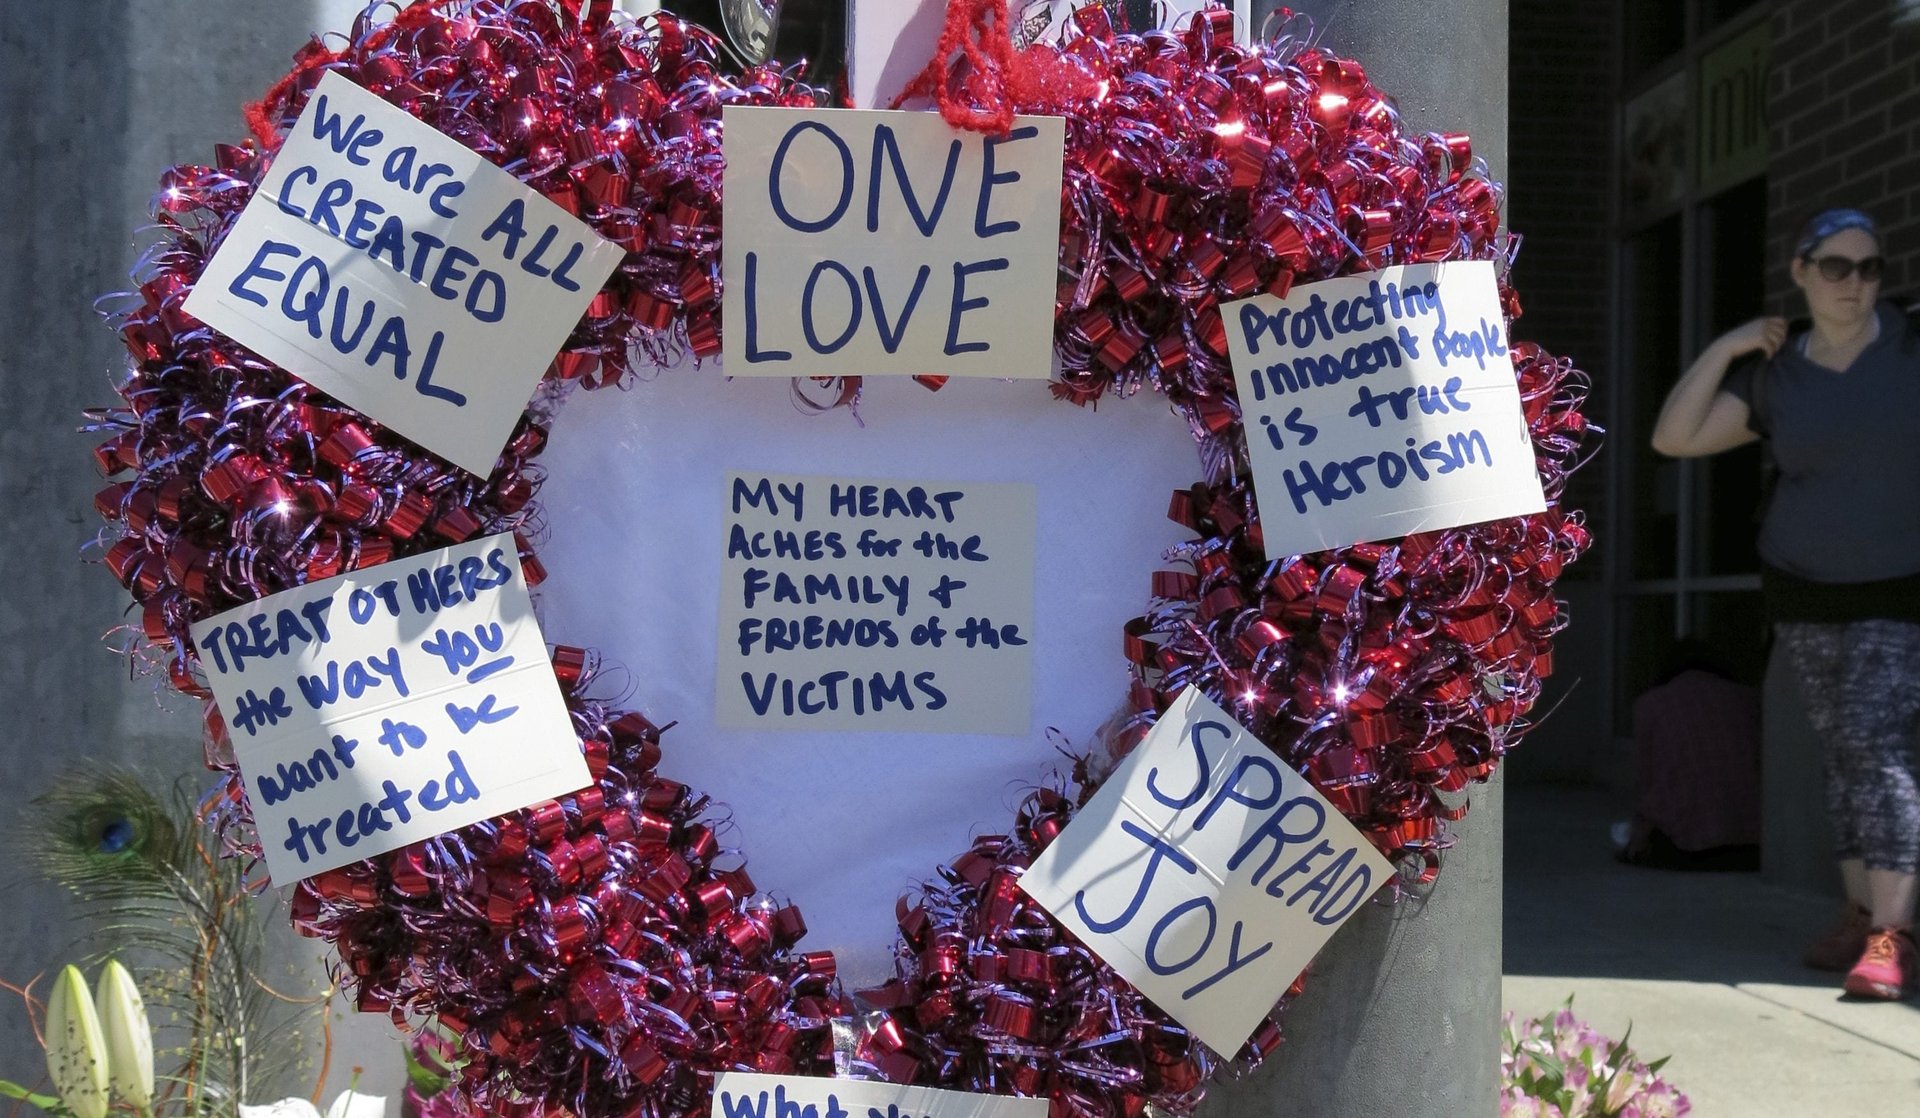 We are ALL
CREATED
EQUAL
ONE
LOVE
Protecting
innocent people
is true
Heroism
MY HEART
ACHES for the
FAMILY +
FRIENDS of the
VICTIMS
TREAT OTHERS
the way YOU
want to be
treated
SPREAD
JOY
What